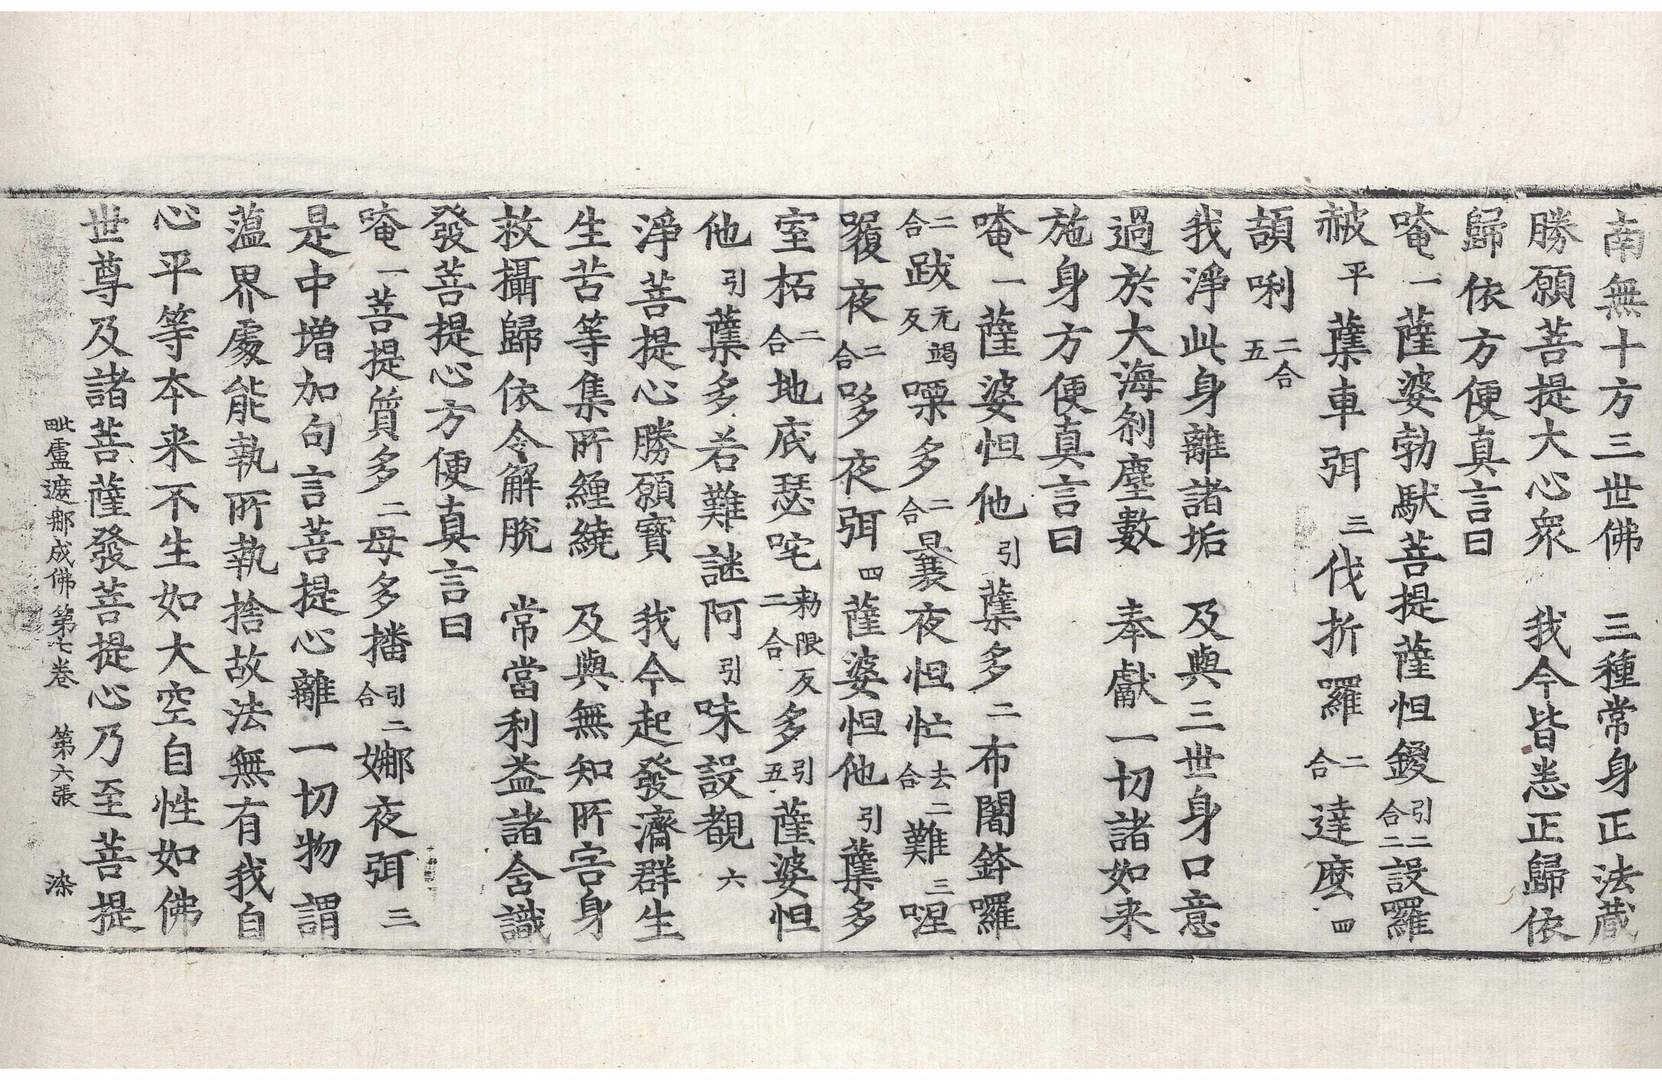 南無十方三世佛　三種常身正法蔵
勝願菩提大心衆　我今皆悉正歸依
歸依方便真言曰
唵一薩婆勃馱菩提薩怛鑁引二合二設羅
赧平蘖車弭三伐折羅二合達麼四
頡唎二合五
我淨此身離諸垢　及與三世身口意
過於大海刹塵數　奉獻一切諸如来
施身方便真言曰
唵一薩婆怛他引蘖多二布闍鉢囉
二合跋无竭反㗚多二合曩夜怛忙去二合難三涅
哩夜二合哆夜弭四薩婆怛他引蘖多
室柘二合地底瑟咤勑限反二合多引五薩婆怛
他引蘖多若難謎阿引味設覩六
淨菩提心勝願寶　我今起發濟群生
生苦等集所纏繞　及與無知所害身
救攝歸依令解脫　常當利益諸含識
發菩提心方便真言曰
唵一菩提質多二母多播引二合娜夜弭三
是中增加句言菩提心離一切物謂
蘊界處能執所執捨故法無有我自
心平等本来不生如大空自性如佛
世尊及諸菩薩發菩提心乃至菩提
毗盧遮那成佛第七卷　第六張　染